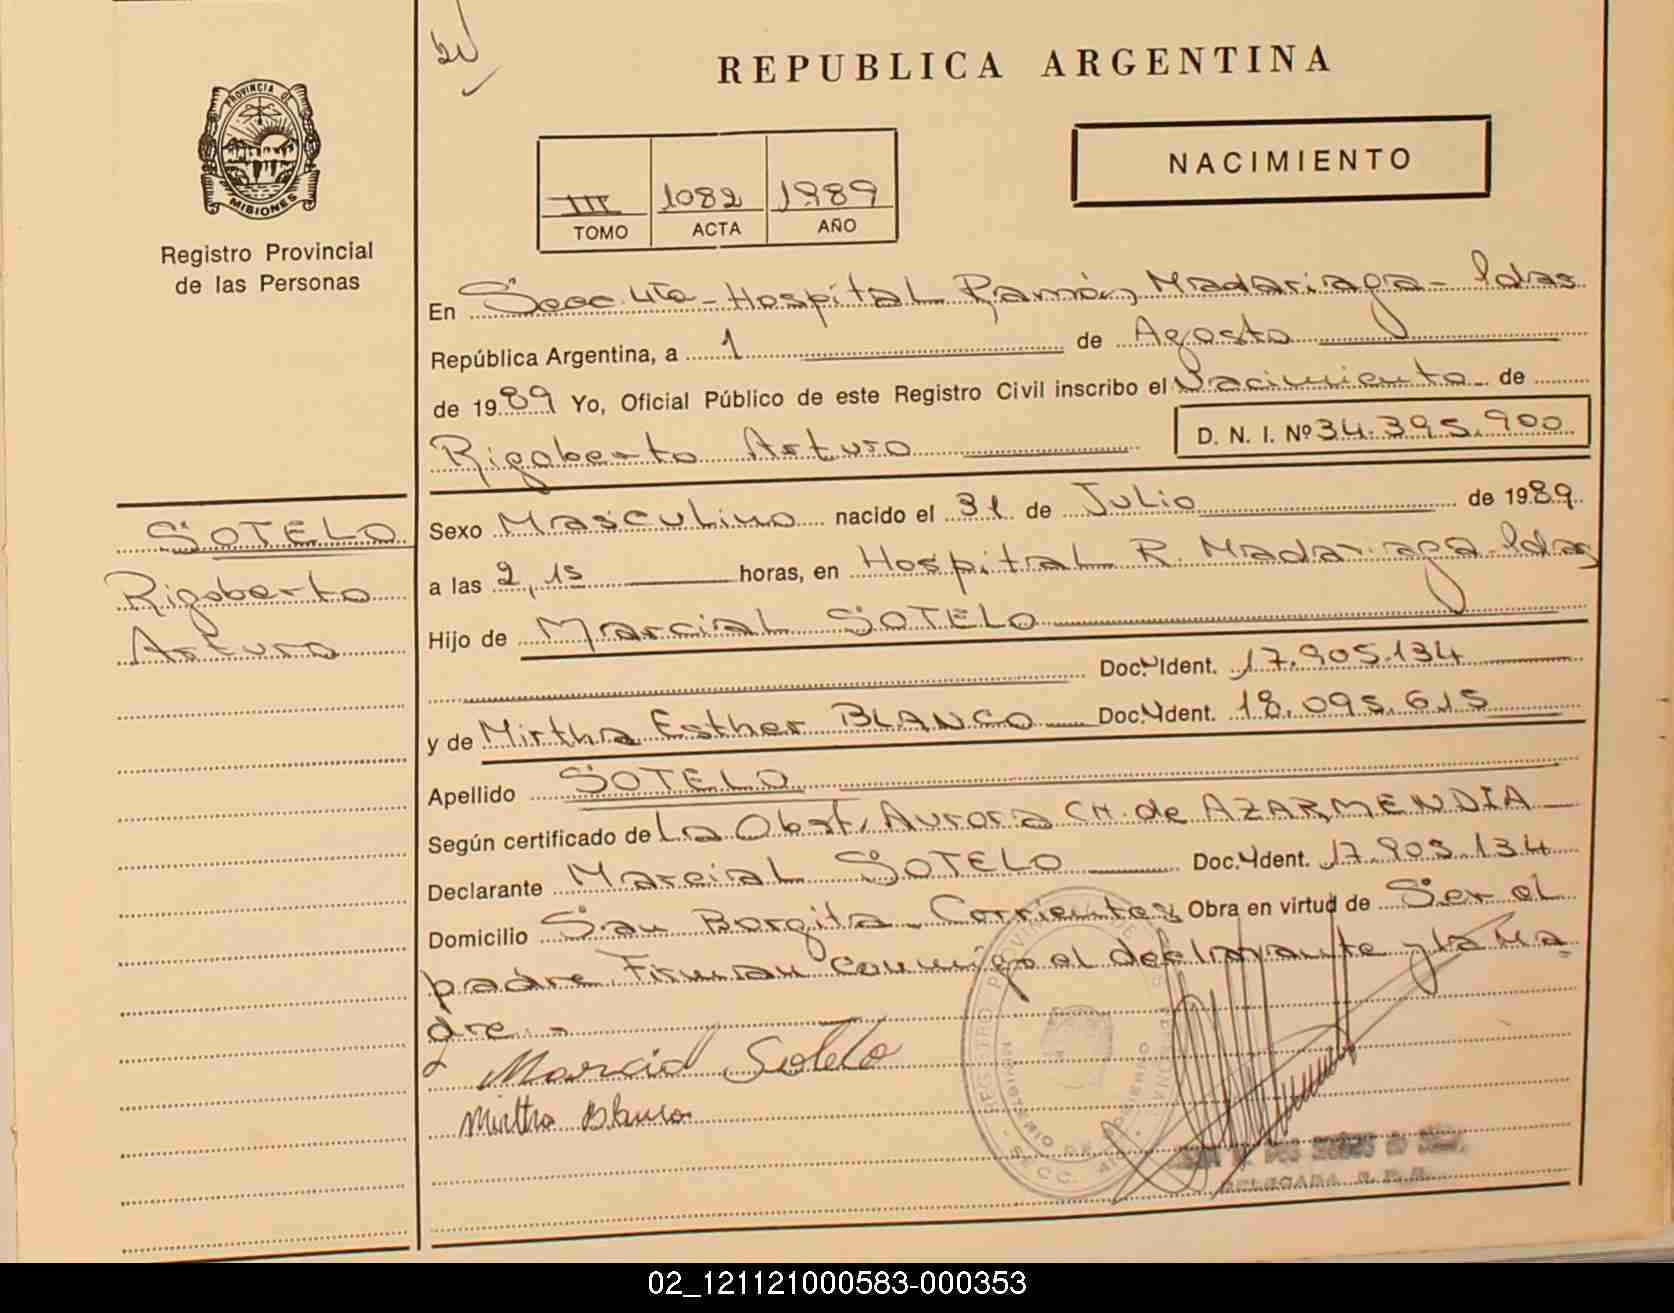 REPUBLICA ARGENTINA
PROVINCIA DE
MISIONES
Registro Provincial
de las Personas
NACIMIENTO
III 1082 1989
TOMO ACTA AÑO
En Secc. 4ta - Hospital Ramón Madariaga - Pdas
República Argentina, a 1 de Agosto
de 1989 Yo, Oficial Público de este Registro Civil inscribo el Nacimiento de
Rigoberto Arturo D. N. I. Nº 34.395.900
SOTELO
Rigoberto
Arturo
Sexo Masculino nacido el 31 de Julio de 1989
a las 2,15 horas, en Hospital R. Madariaga - Pdas
Hijo de Marcial SOTELO
Doc. Ident. 17.905.134
y de Mirtha Esther BLANCO Doc. Ident. 18.095.615
Apellido SOTELO
Según certificado de La Obst. Aurora CH. de AZARMENDIA
Declarante Marcial SOTELO Doc. Ident. 17.905.134
Domicilio San Borgita - Corrientes Obra en virtud de Ser el
padre. Firman conmigo el declarante y la ma
dre. -
Marcial Sotelo
Mirtha Blanco
REGISTRO PROVINCIAL DE LAS PERSONAS
MINISTERIO DE GOBIERNO
SECC. 4ta
DELEGADA R. P. P.
02_121121000583-000353